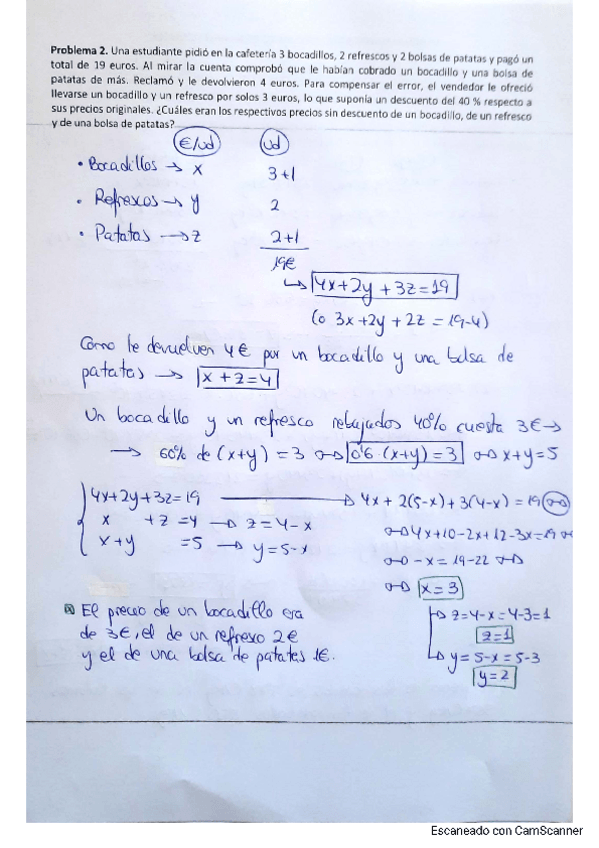 Problema 2. Una estudiante pidió en la cafetería 3 bocadillos, 2 refrescos y 2 bolsas de patatas y pagó un
total de 19 euros. Al mirar la cuenta comprobó que le habían cobrado un bocadillo y una bolsa de
patatas de más. Reclamó y le devolvieron 4 euros. Para compensar el error, el vendedor le ofreció
llevarse un bocadillo y un refresco por solos 3 euros, lo que suponía un descuento del 40 % respecto a
sus precios originales. ¿Cuáles eran los respectivos precios sin descuento de un bocadillo, de un refresco
y de una bolsa de patatas?
€/ud ud
• Bocadillos → x 3+1
• Refrescos → y 2
• Patatas → z 2+1
19€
↳ 4x+2y+3z=19
(o 3x+2y+2z=19-4)
Como te devuelven 4€ por un bocadillo y una bolsa de
patatas → x+z=4
Un bocadillo y un refresco rebajados 40% cuesta 3€→
→ 60% de (x+y)=3 ⇔ 0'6·(x+y)=3 ⇔ x+y=5
4x+2y+3z=19 → 4x+2(5-x)+3(4-x)=19 ⇔
x +z=4 → z=4-x ⇔ 4x+10-2x+12-3x=19 ⇔
x+y =5 → y=5-x ⇔ -x=19-22 ⇔
⇔ x=3
El precio de un bocadillo era → z=4-x=4-3=1
de 3€, el de un refresco 2€ z=1
y el de una bolsa de patatas 1€. → y=5-x=5-3
y=2
Escaneado con CamScanner